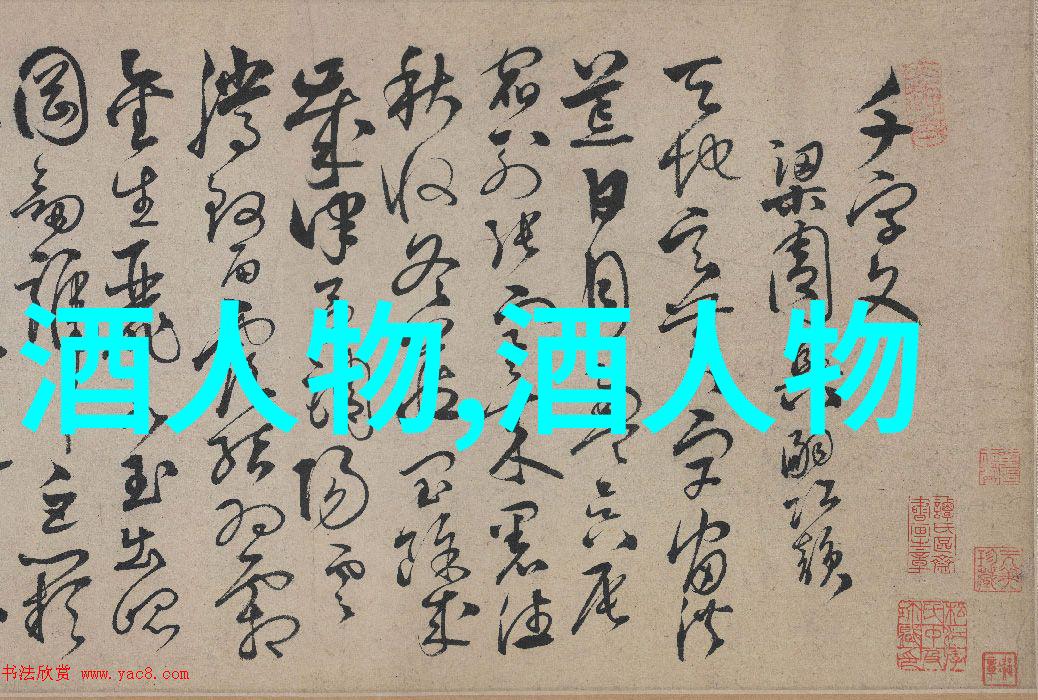 千字文
梁周興嗣次韻
天地玄黃宇宙洪
荒日月盈昃辰
宿列張寒來暑往
秋收冬藏閏餘成
歲律呂調陽雲
騰致雨露結為霜
金生麗水玉出崑
岡劍號巨闕
酒人物,酒人物
书法欣赏 www.yac8.com